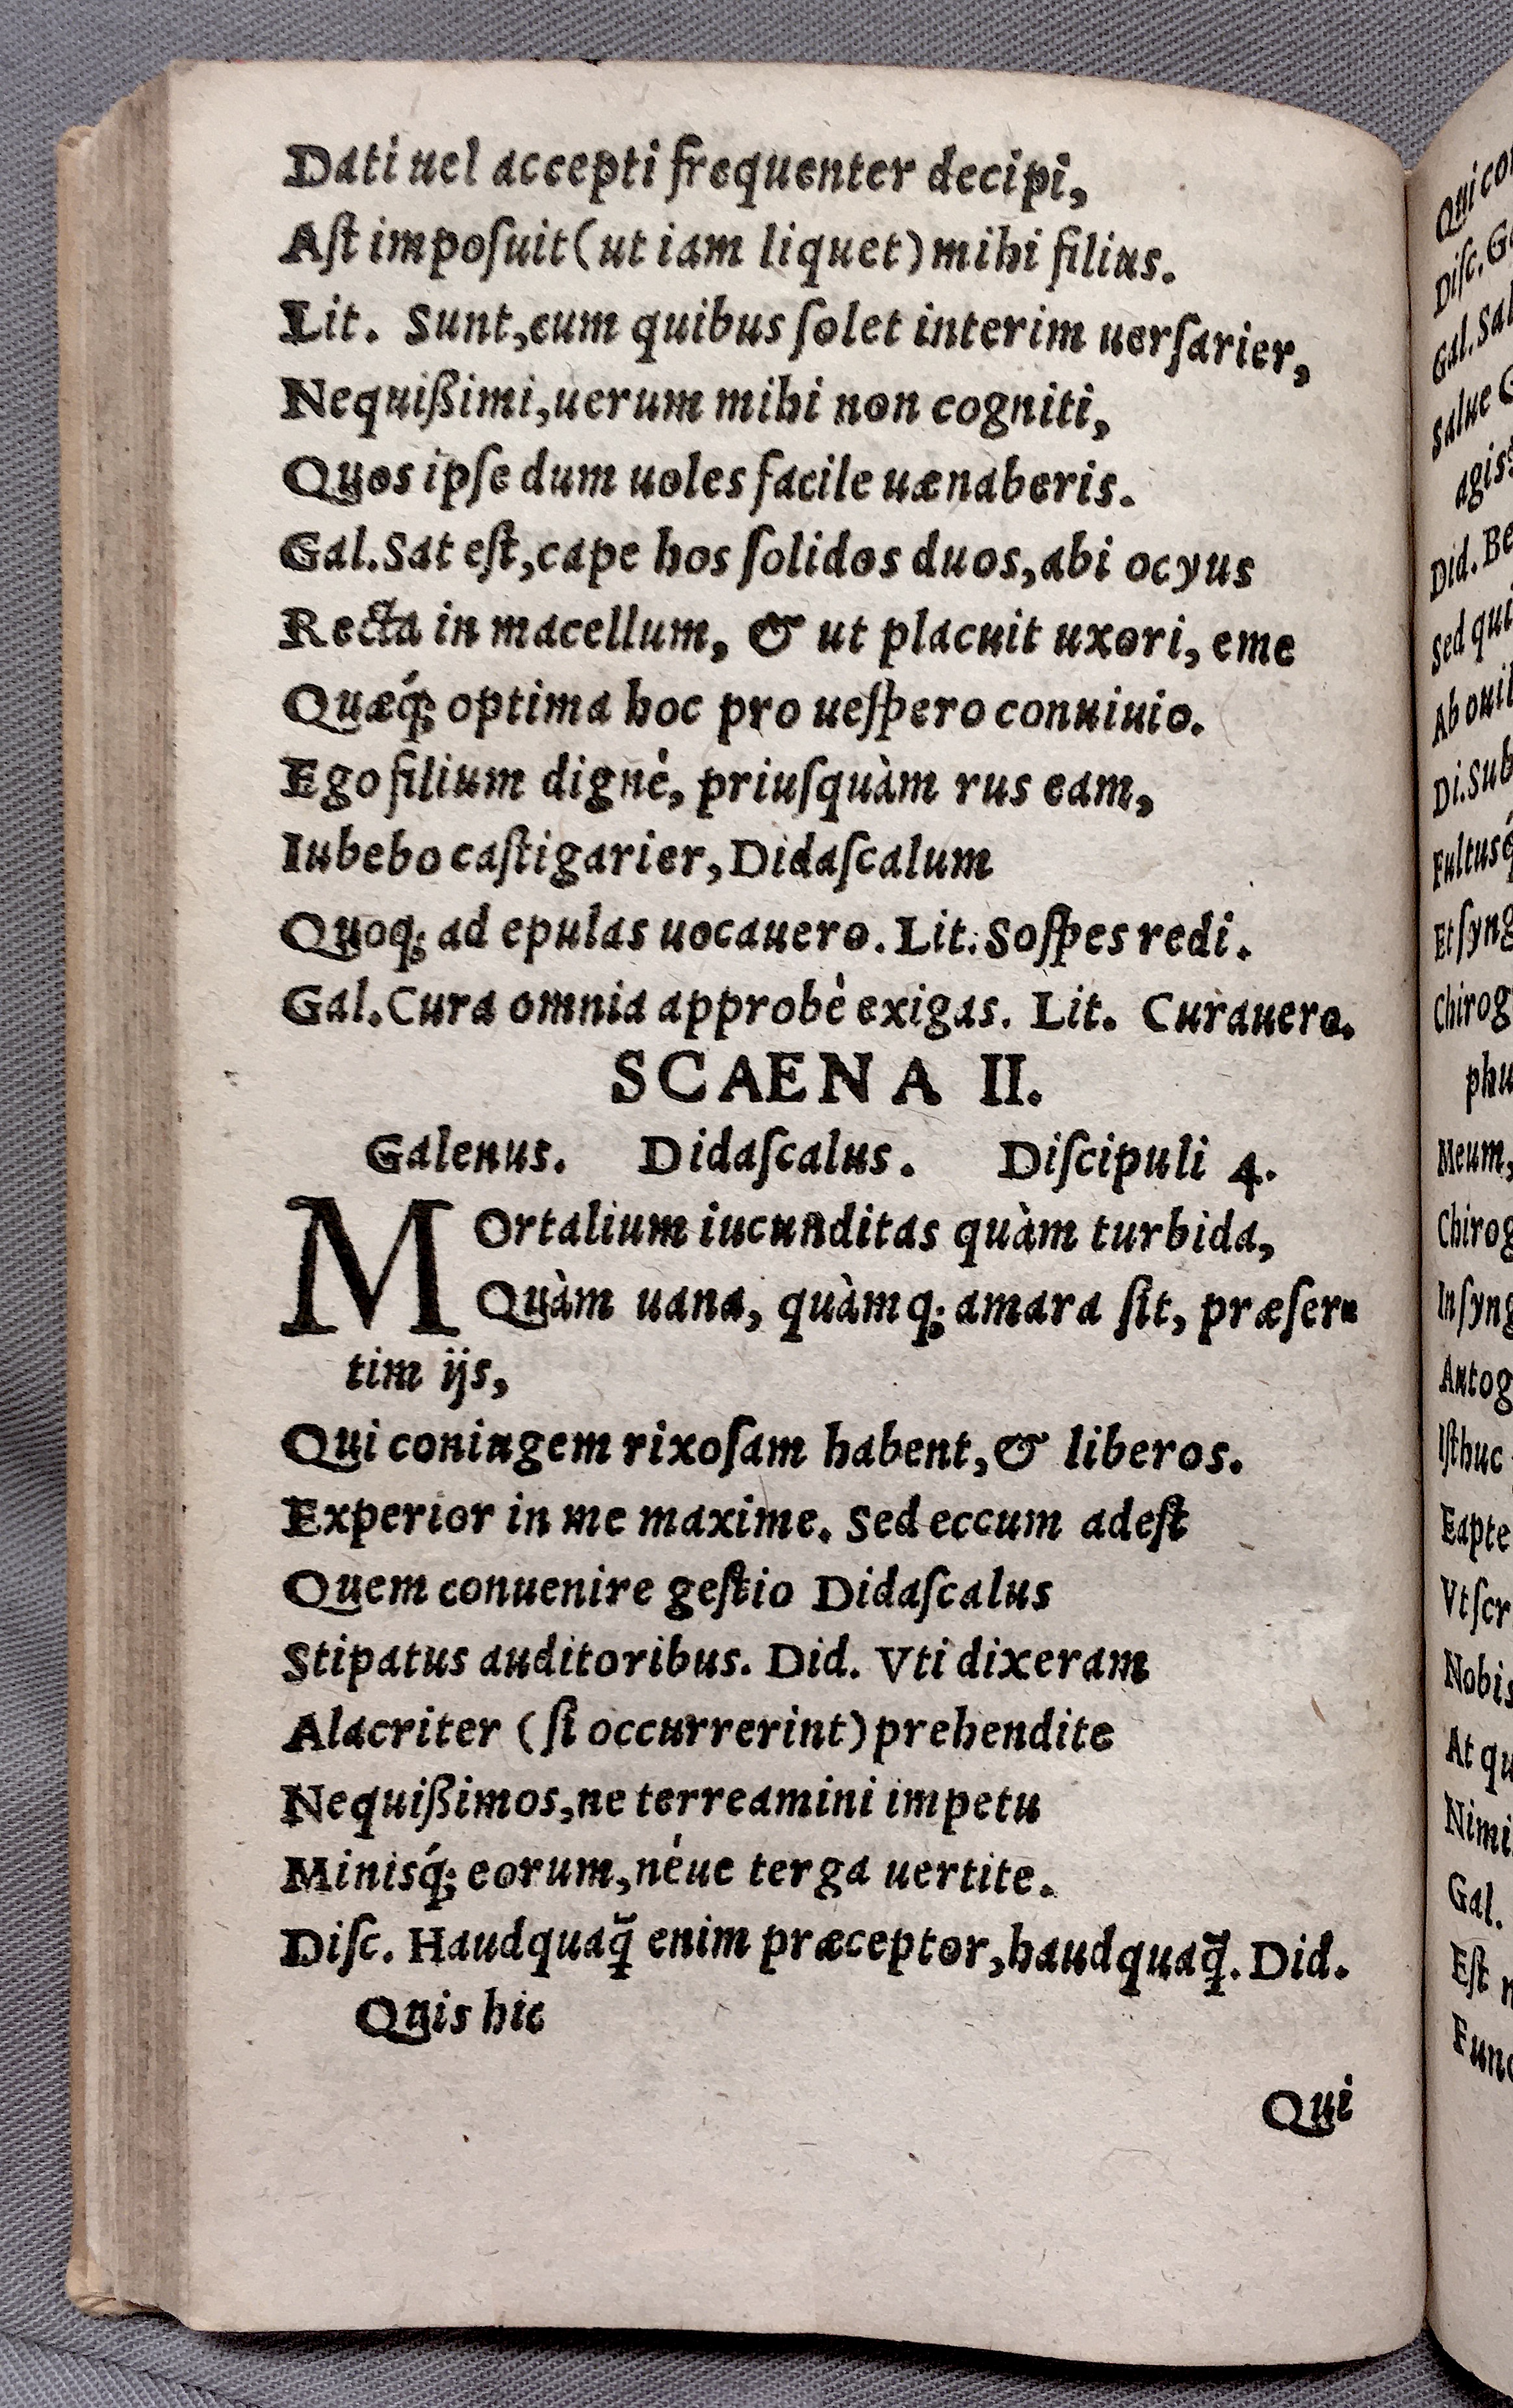 Dati uel accepti frequenter decipi,
Aſt impoſuit (ut iam liquet) mihi filius.
Lit. Sunt, cum quibus ſolet interim uerſarier,
Nequißimi, uerum mihi non cogniti,
Quos ipſe dum uoles facile uænaberis.
Gal. Sat eſt, cape hos ſolidos duos, abi ocyus
Recta in macellum, & ut placuit uxori, eme
Quæq́; optima hoc pro ueſpero conuiuio.
Ego filium dignè, priuſquàm rus eam,
Iubebo caſtigarier, Didaſcalum
Quoq; ad epulas uocauero. Lit. Soſpes redi.
Gal. Cura omnia approbè exigas. Lit. Curauero.
SCAENA II.
Galenus. Didaſcalus. Diſcipuli 4.
MOrtalium iucunditas quàm turbida,
Quàm uana, quàmq; amara ſit, præſer-
tim ijs,
Qui coniugem rixoſam habent, & liberos.
Experior in me maxime. Sed eccum adeſt
Quem conuenire geſtio Didaſcalus
Stipatus auditoribus. Did. Vti dixeram
Alacriter (ſi occurrerint) prehendite
Nequißimos, ne terreamini impetu
Minisq́; eorum, néue terga uertite.
Diſc. Haudquaq̃ enim præceptor, haudquaq̃. Did.
Quis hic
Qui
Qui
Diſc. G
Gal. Sal
Salue G
agis
Did. Be
Sed qui
Ab ouil
Di. Sub
Fultusq́
Et ſyng
Chirog
phu
Meum,
Chirog
In ſyng
Antog
Iſthuc
Eapte
Vt ſcr
Nobis
At qu
Nimi
Gal.
Eſt
Func